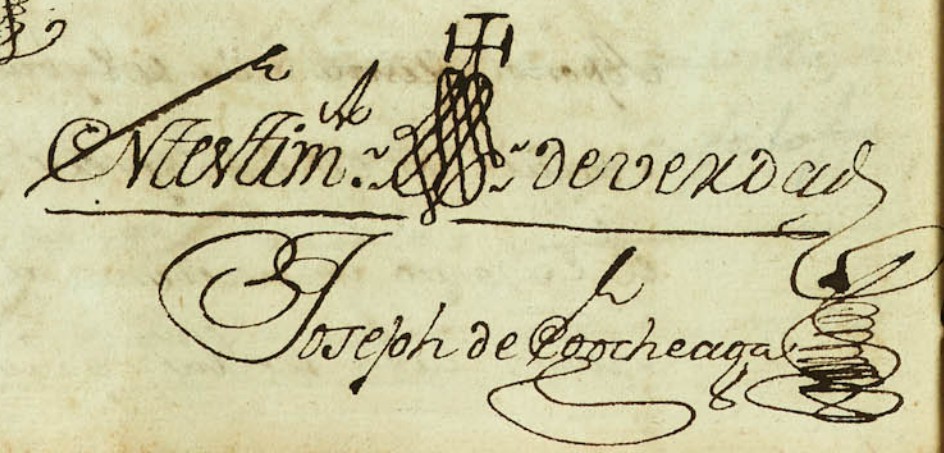 En testim.º de verdad
Joseph de Goocheaga